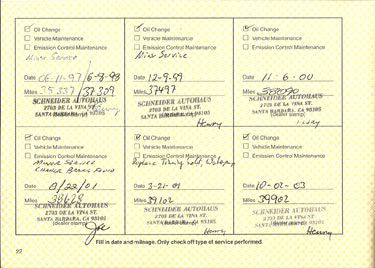 Oil Change
Vehicle Maintenance
Emission Control Maintenance
Minor Service
Date 06-11-97/6-8-98
Miles 35,337/37,309
SCHNEIDER AUTOHAUS
2703 DE LA VINA ST.
SANTA BARBARA, CA 93105
Oil Change
Vehicle Maintenance
Emission Control Maintenance
Minor Service
Date 12-9-99
Miles 37497
SCHNEIDER AUTOHAUS
2703 DE LA VINA ST.
SANTA BARBARA, CA 93105
Henry
Oil Change
Vehicle Maintenance
Emission Control Maintenance
Date 11-6-00
Miles
SCHNEIDER AUTOHAUS
2703 DE LA VINA ST.
SANTA BARBARA, CA 93105
(dealer stamp)
Henry
Oil Change
Vehicle Maintenance
Emission Control Maintenance
Minor Service
Change Brake Fluid
Date 8/22/01
Miles 38628
SCHNEIDER AUTOHAUS
2703 DE LA VINA ST.
SANTA BARBARA, CA 93105
(dealer stamp)
Joe
Oil Change
Vehicle Maintenance
Emission Control Maintenance
Replace Timing belt, Water pump
Date 3-21-01
Miles 39102
SCHNEIDER AUTOHAUS
2703 DE LA VINA ST.
SANTA BARBARA, CA 93105
Henry
Oil Change
Vehicle Maintenance
Emission Control Maintenance
Date 10-02-03
Miles 39902
SCHNEIDER AUTOHAUS
2703 DE LA VINA ST.
SANTA BARBARA, CA 93105
(dealer stamp)
Henry
Fill in date and mileage. Only check off type of service performed.
22